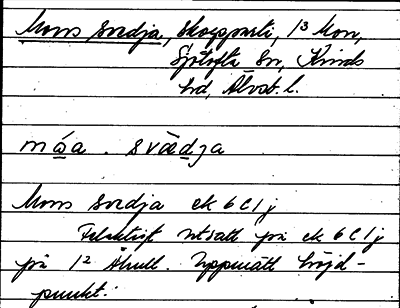 Mons svedja, skogsparti, 13 Mon,
Sjötofta sn, Kinds
hd, Älvsb. l.
måa . svädja
Mons svedja ek 6 C 1 j
Felaktigt utsatt på ek 6 C 1 j
på 12 Uppmätt höjd-
punkt.